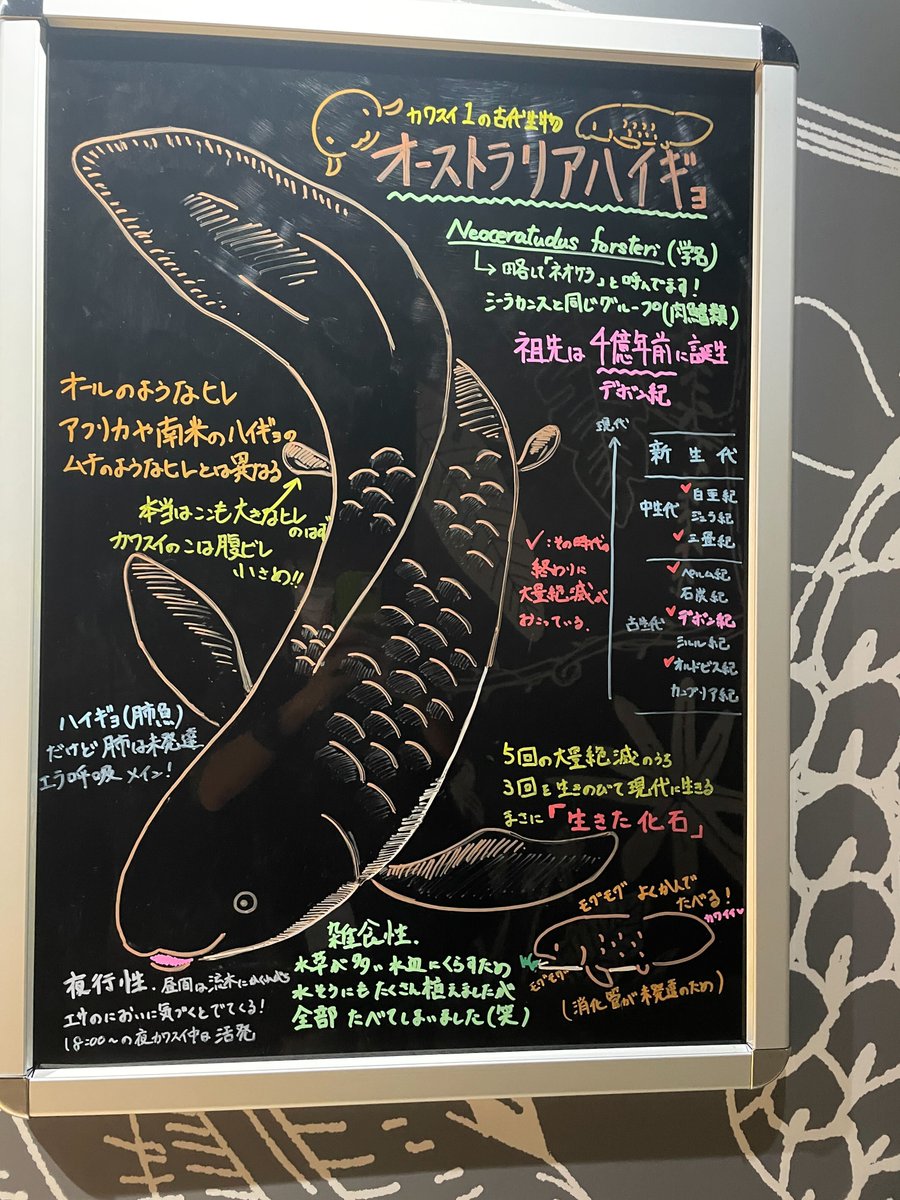 カワスイ1の古代生物
オーストラリアハイギョ
Neoceratudus forsteri (学名)
↳ 略して「ネオケラ」と呼んでます!
シーラカンスと同じグループ(肉鰭類)
祖先は 4億年前に誕生
デボン紀
オールのようなヒレ
アフリカや南米のハイギョの
ムチのようなヒレとは異なる
本当はここも大きなヒレ
のはず
カワスイのこは腹ビレ
小さめ!!
現代
新生代
中生代
✓白亜紀
ジュラ紀
✓三畳紀
古生代
✓ペルム紀
石炭紀
✓デボン紀
シルル紀
✓オルドビス紀
カンブリア紀
✓:その時代の
終わりに
大量絶滅が
おこっている。
ハイギョ(肺魚)
だけど肺は未発達
エラ呼吸メイン!
5回の大量絶滅のうち
3回を生きのびて現代に生きる
まさに「生きた化石」
モグモグ よくかんで
たべる!
カワイイ
モグモグ
(消化管が未発達のため)
雑食性.
水草が多い水皿にくらすため
水そうにもたくさん植えましたが
全部 たべてしまいました(笑)
夜行性. 昼間は流木に
エサのにおいに気づくとでてくる!
18:00〜の夜カワスイ中は活発